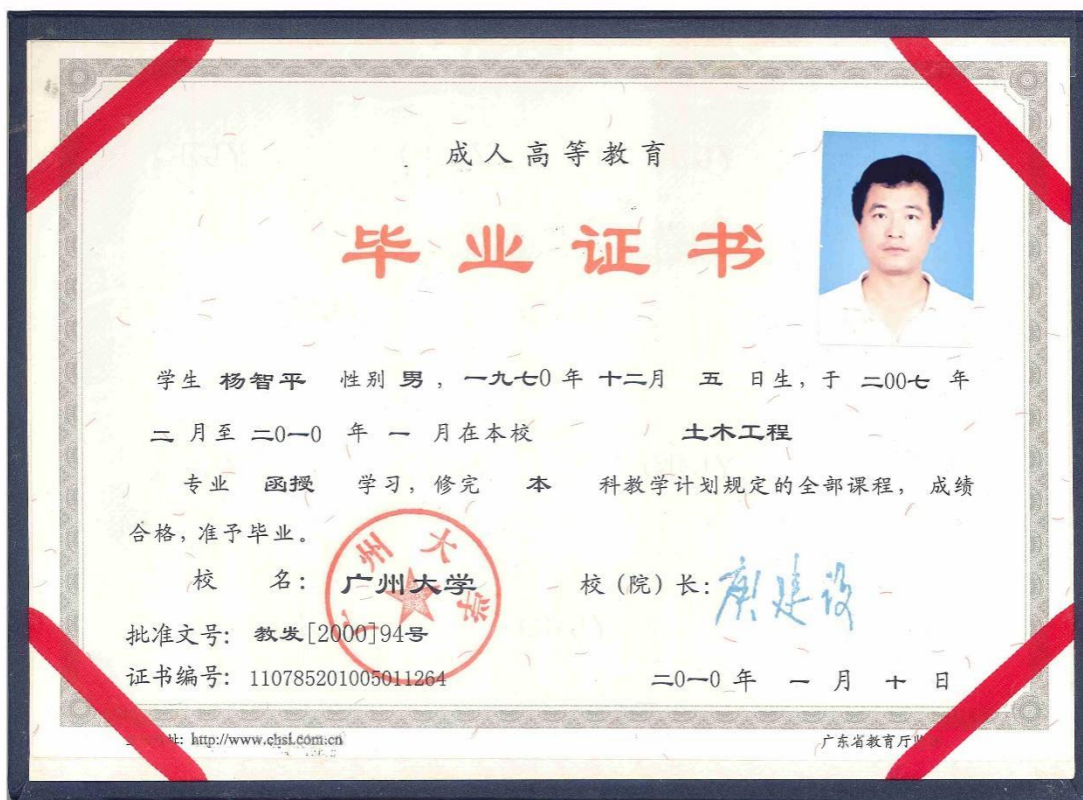 成人高等教育
毕业证书
学生 杨智平 性别 男，一九七0 年 十二月 五 日生，于 二00七 年
二 月至 二0一0 年 一 月在本校 土木工程
专业 函授 学习，修完 本 科教学计划规定的全部课程，成绩
合格，准予毕业。
校 名：广州大学 校（院）长：庾建设
批准文号：教发[2000]94号
证书编号：110785201005011264 二0一0 年 一 月 十 日
址：http://www.chsi.com.cn 广东省教育厅
广州大学